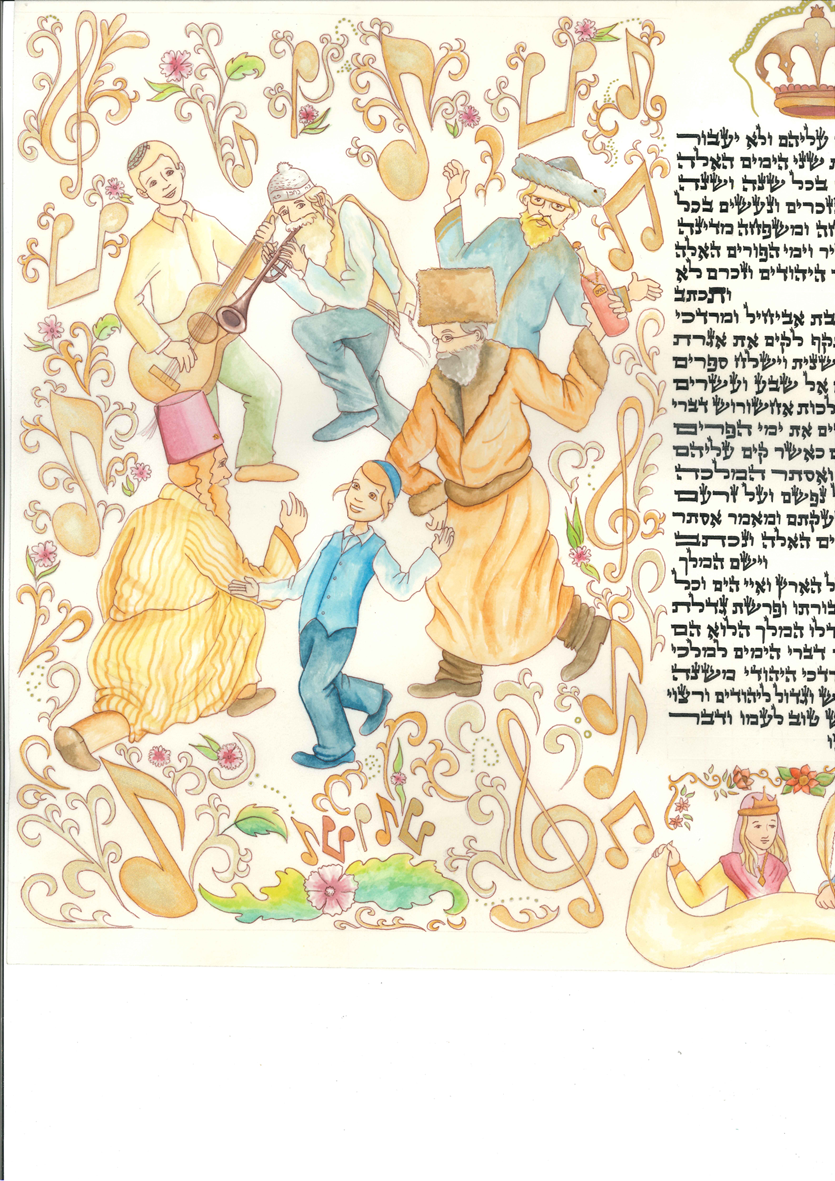 עליהם ולא יעבור
שני הימים האלה
בכל שנה ושנה
זכרים ונעשים בכל
חה ומשפחה מדינה
יר וימי הפורים האלה
היהודים וזכרם לא
ותכתב
בת אביחיל ומרדכי
תקף לקים את אגרת
שנית וישלח ספרים
אל שבע ועשרים
לכות אחשורוש דברי
ים את ימי הפרים
כאשר קים עליהם
ואסתר המלכה
נפשם ועל זרעם
זעקתם ומאמר אסתר
ים האלה ונכתב
וישם המלך
ל הארץ ואיי הים וכל
בורתו ופרשת גדלת
דלו המלך הלוא הם
דברי הימים למלכי
רדכי היהודי משנה
ש וגדול ליהודים ורצוי
ש טוב לעמו ודבר